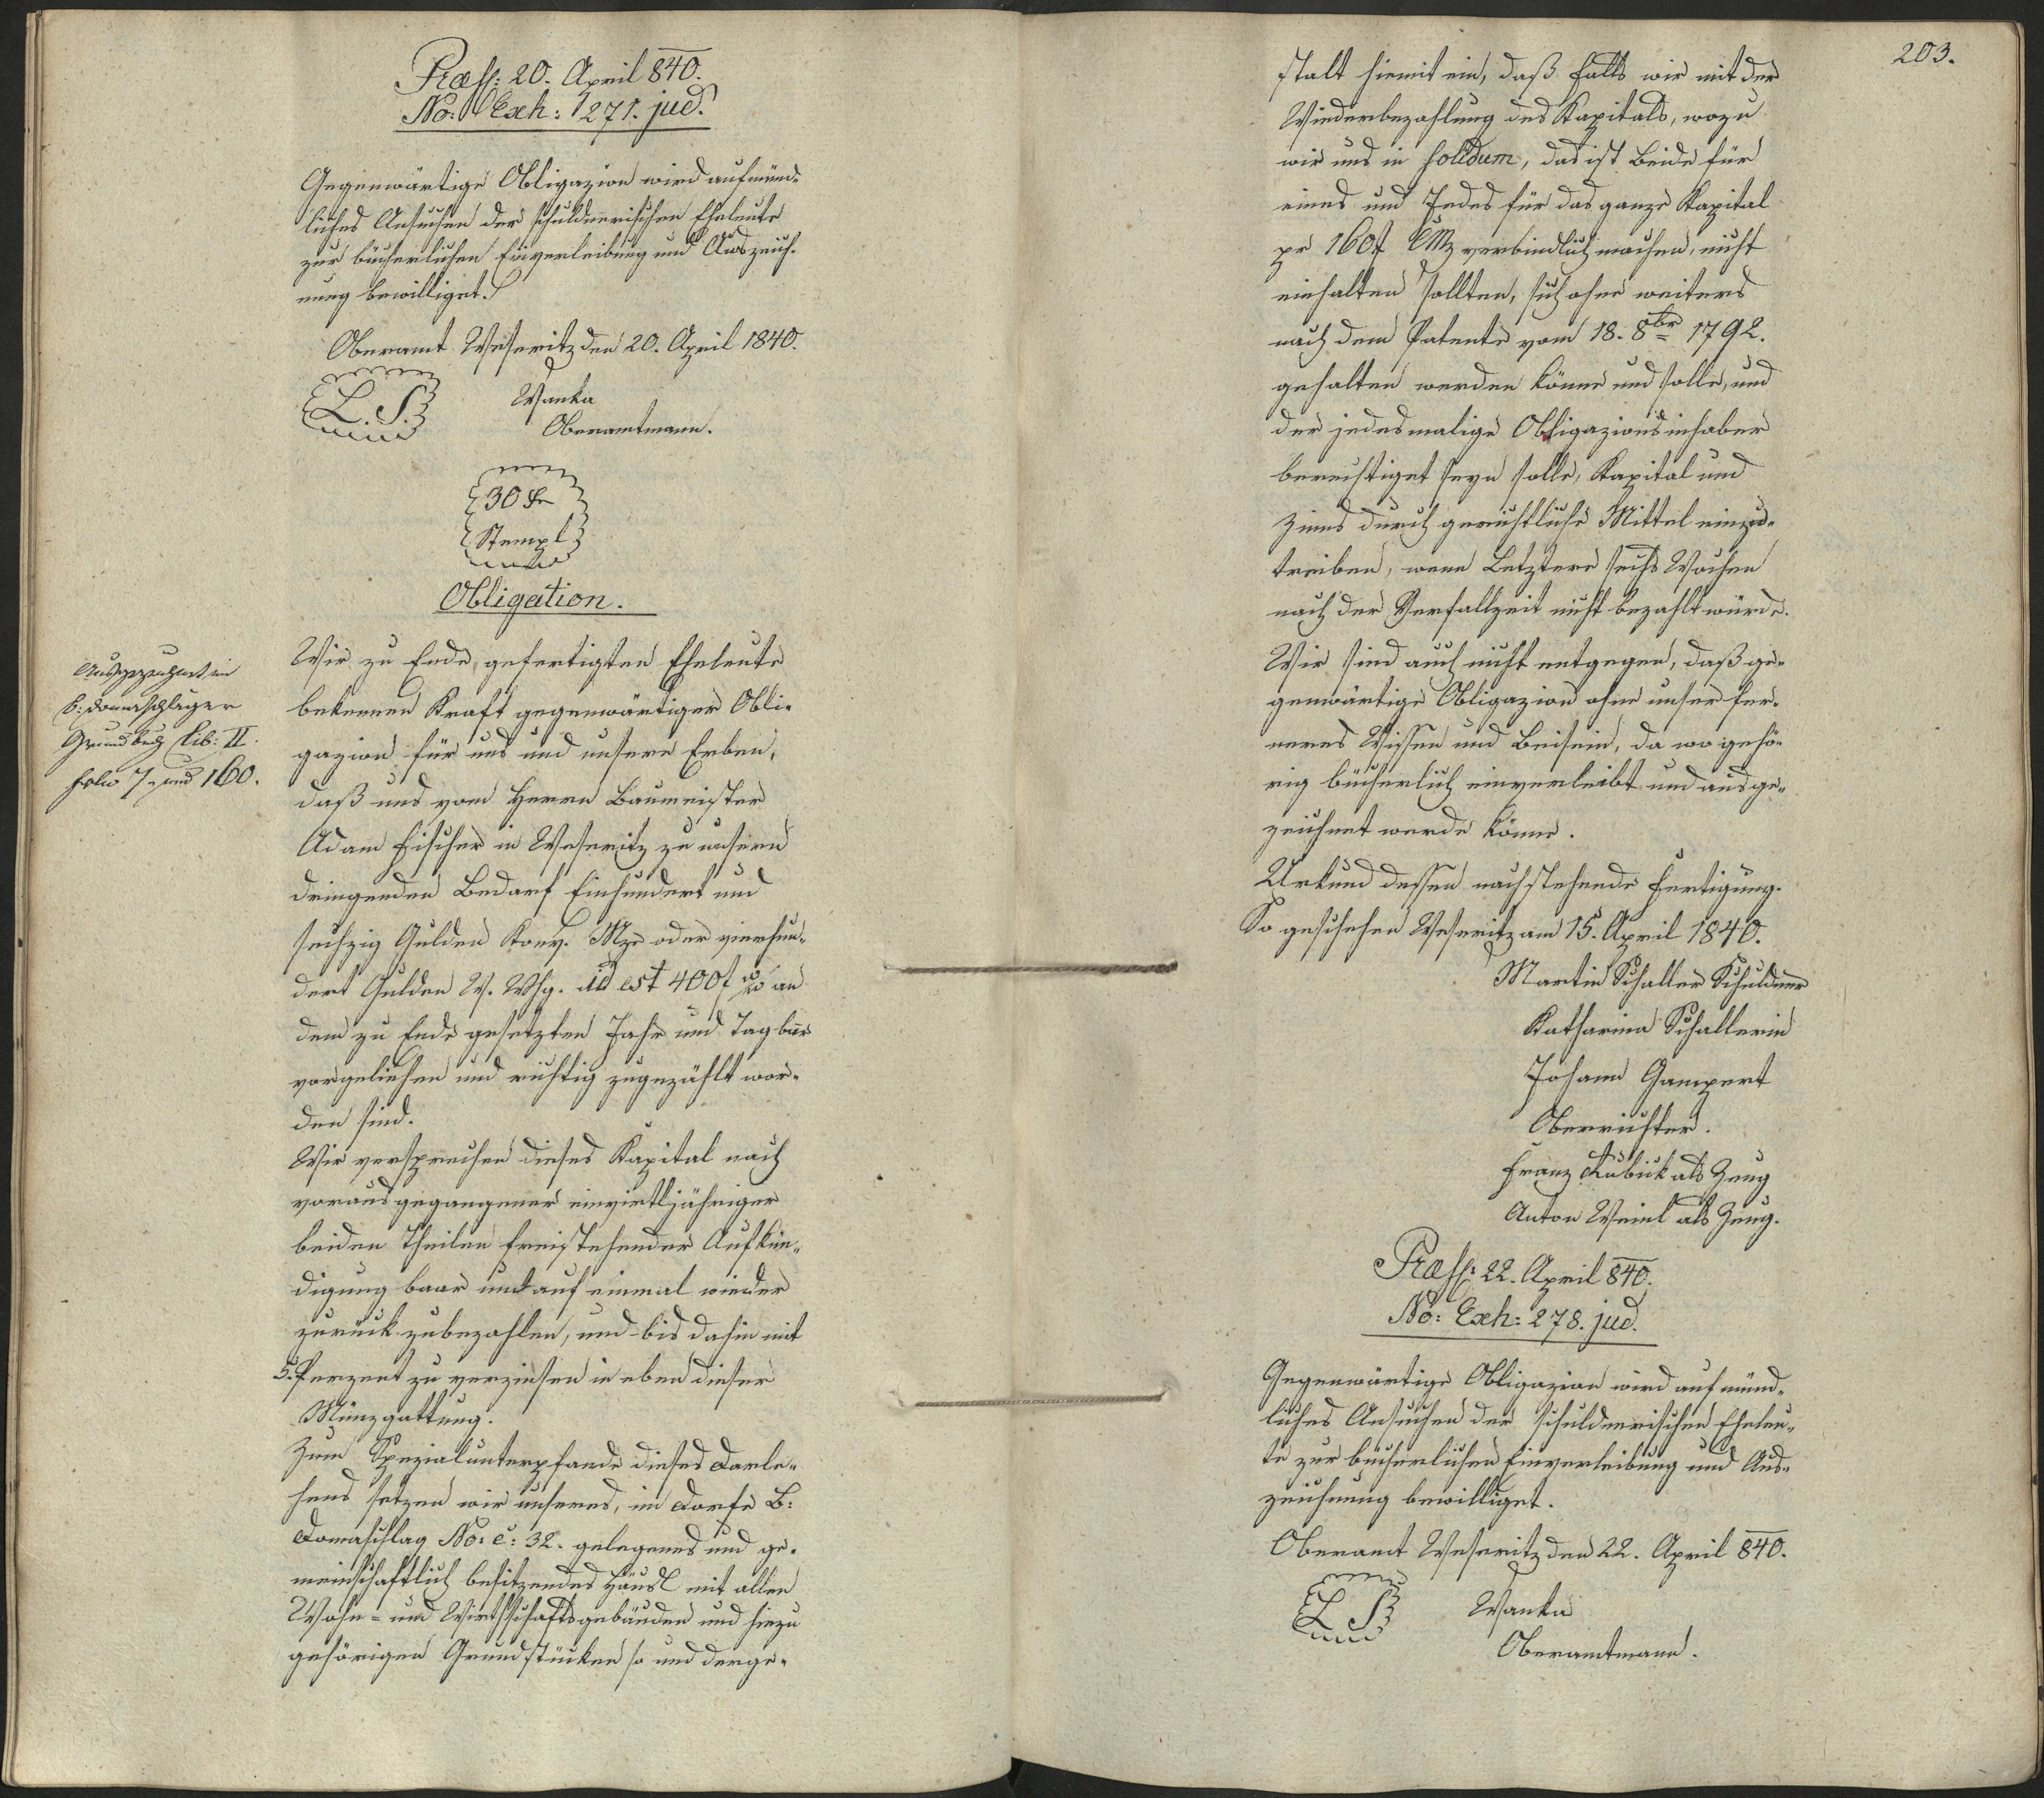 Præs: 20. April 840.
No: Exh: 1271. jud.
Gegenwärtige Obligazion wird auf münd-
liches Ansuchen der schuldnerischen Eheleute
zur bücherlichen Einverleibung und Auszeich-
nung bewilliget.
Oberamt Weseritz den 20. April 1840.
L. S. Wanka
Oberamtmann.
30 Kr
Stempl
Obligation.
Ausgezeichnet im
B: Domaschlager
Grundbuch Lib: II.
folio 7. und 160.
Wir zu Ende gefertigten Eheleute
bekennen Kraft gegenwärtiger Obli-
gazion für uns und unsere Erben,
daß uns vom Herrn Baumeister
Adam Fischer in Weseritz zu unsern
dringenden Bedarf Einhundert und
sechzig Gulden Konv. Mze oder vierhun-
dert Gulden W. Whg. id est 400 f an
dem zu Ende gesetzten Jahr und Tag bar
vorgeliehen und richtig zugezählt wor-
den sind.
Wir versprechen dieses Kapital nach
vorausgegangener einvirtljähriger
beiden Theilen freistehender Aufkün-
digung baar und auf einmal wieder
zurück zubezahlen, und bis dahin mit
5. Perzent zu verzinsen in eben dieser
Münzgattung.
Zum Spezialunterpfande dieses Darle-
hens setzen wir unseres, im Dorfe B:
Domaschlag No: C: 32. gelegenes und ge-
meinschaftlich besitzendes Häusl mit allen
Wohn- und Wirthschaftsgebäuden und hiezu
gehörigen Grundstücken so und derge-
203.
stalt hiemit ein, daß falls wir mit der
Wiederbezahlung des Kapitals, wozu
wir uns in solidum, das ist Beide für
eines und Jedes für das ganze Kapital
pr 160 f CMz verbindlich machen, nicht
einhalten sollten, sich ohne weiters
nach dem Patente vom 18. 8br 1792.
gehalten werden könne und solle, und
der jedesmalige Obligazionsinhaber
berechtiget seyn solle, Kapital und
Zinns durch gerichtliche Mittel einzu-
treiben, wenn Letztere sechs Wochen
nach der Verfallzeit nicht bezahlt würde.
Wir sind auch nicht entgegen, daß ge-
genwärtige Obligazion ohne unser fer-
neres Wissen und Beisein, da wo gehö-
rig bücherlich einverleibt und ausge-
zeichnet werde könne.
Urkund dessen nachstehende Fertigung.
So geschehen Weseritz am 15. April 1840.
Martin Schaller Schuldner
Katharina Schallerin
Johann Gampert
Oberrichter.
Franz Kubick als Zeug
Anton Weinl als Zeug.
Præs: 22. April 840.
No: Exh: 278. jud.
Gegenwärtige Obligazion wird auf münd-
liches Ansuchen der schuldnerischen Eheleu-
te zur bücherlichen Einverleibung und Aus-
zeichnung bewilliget.
Oberamt Weseritz den 22. April 840.
L S Wanka
Oberamtmann.